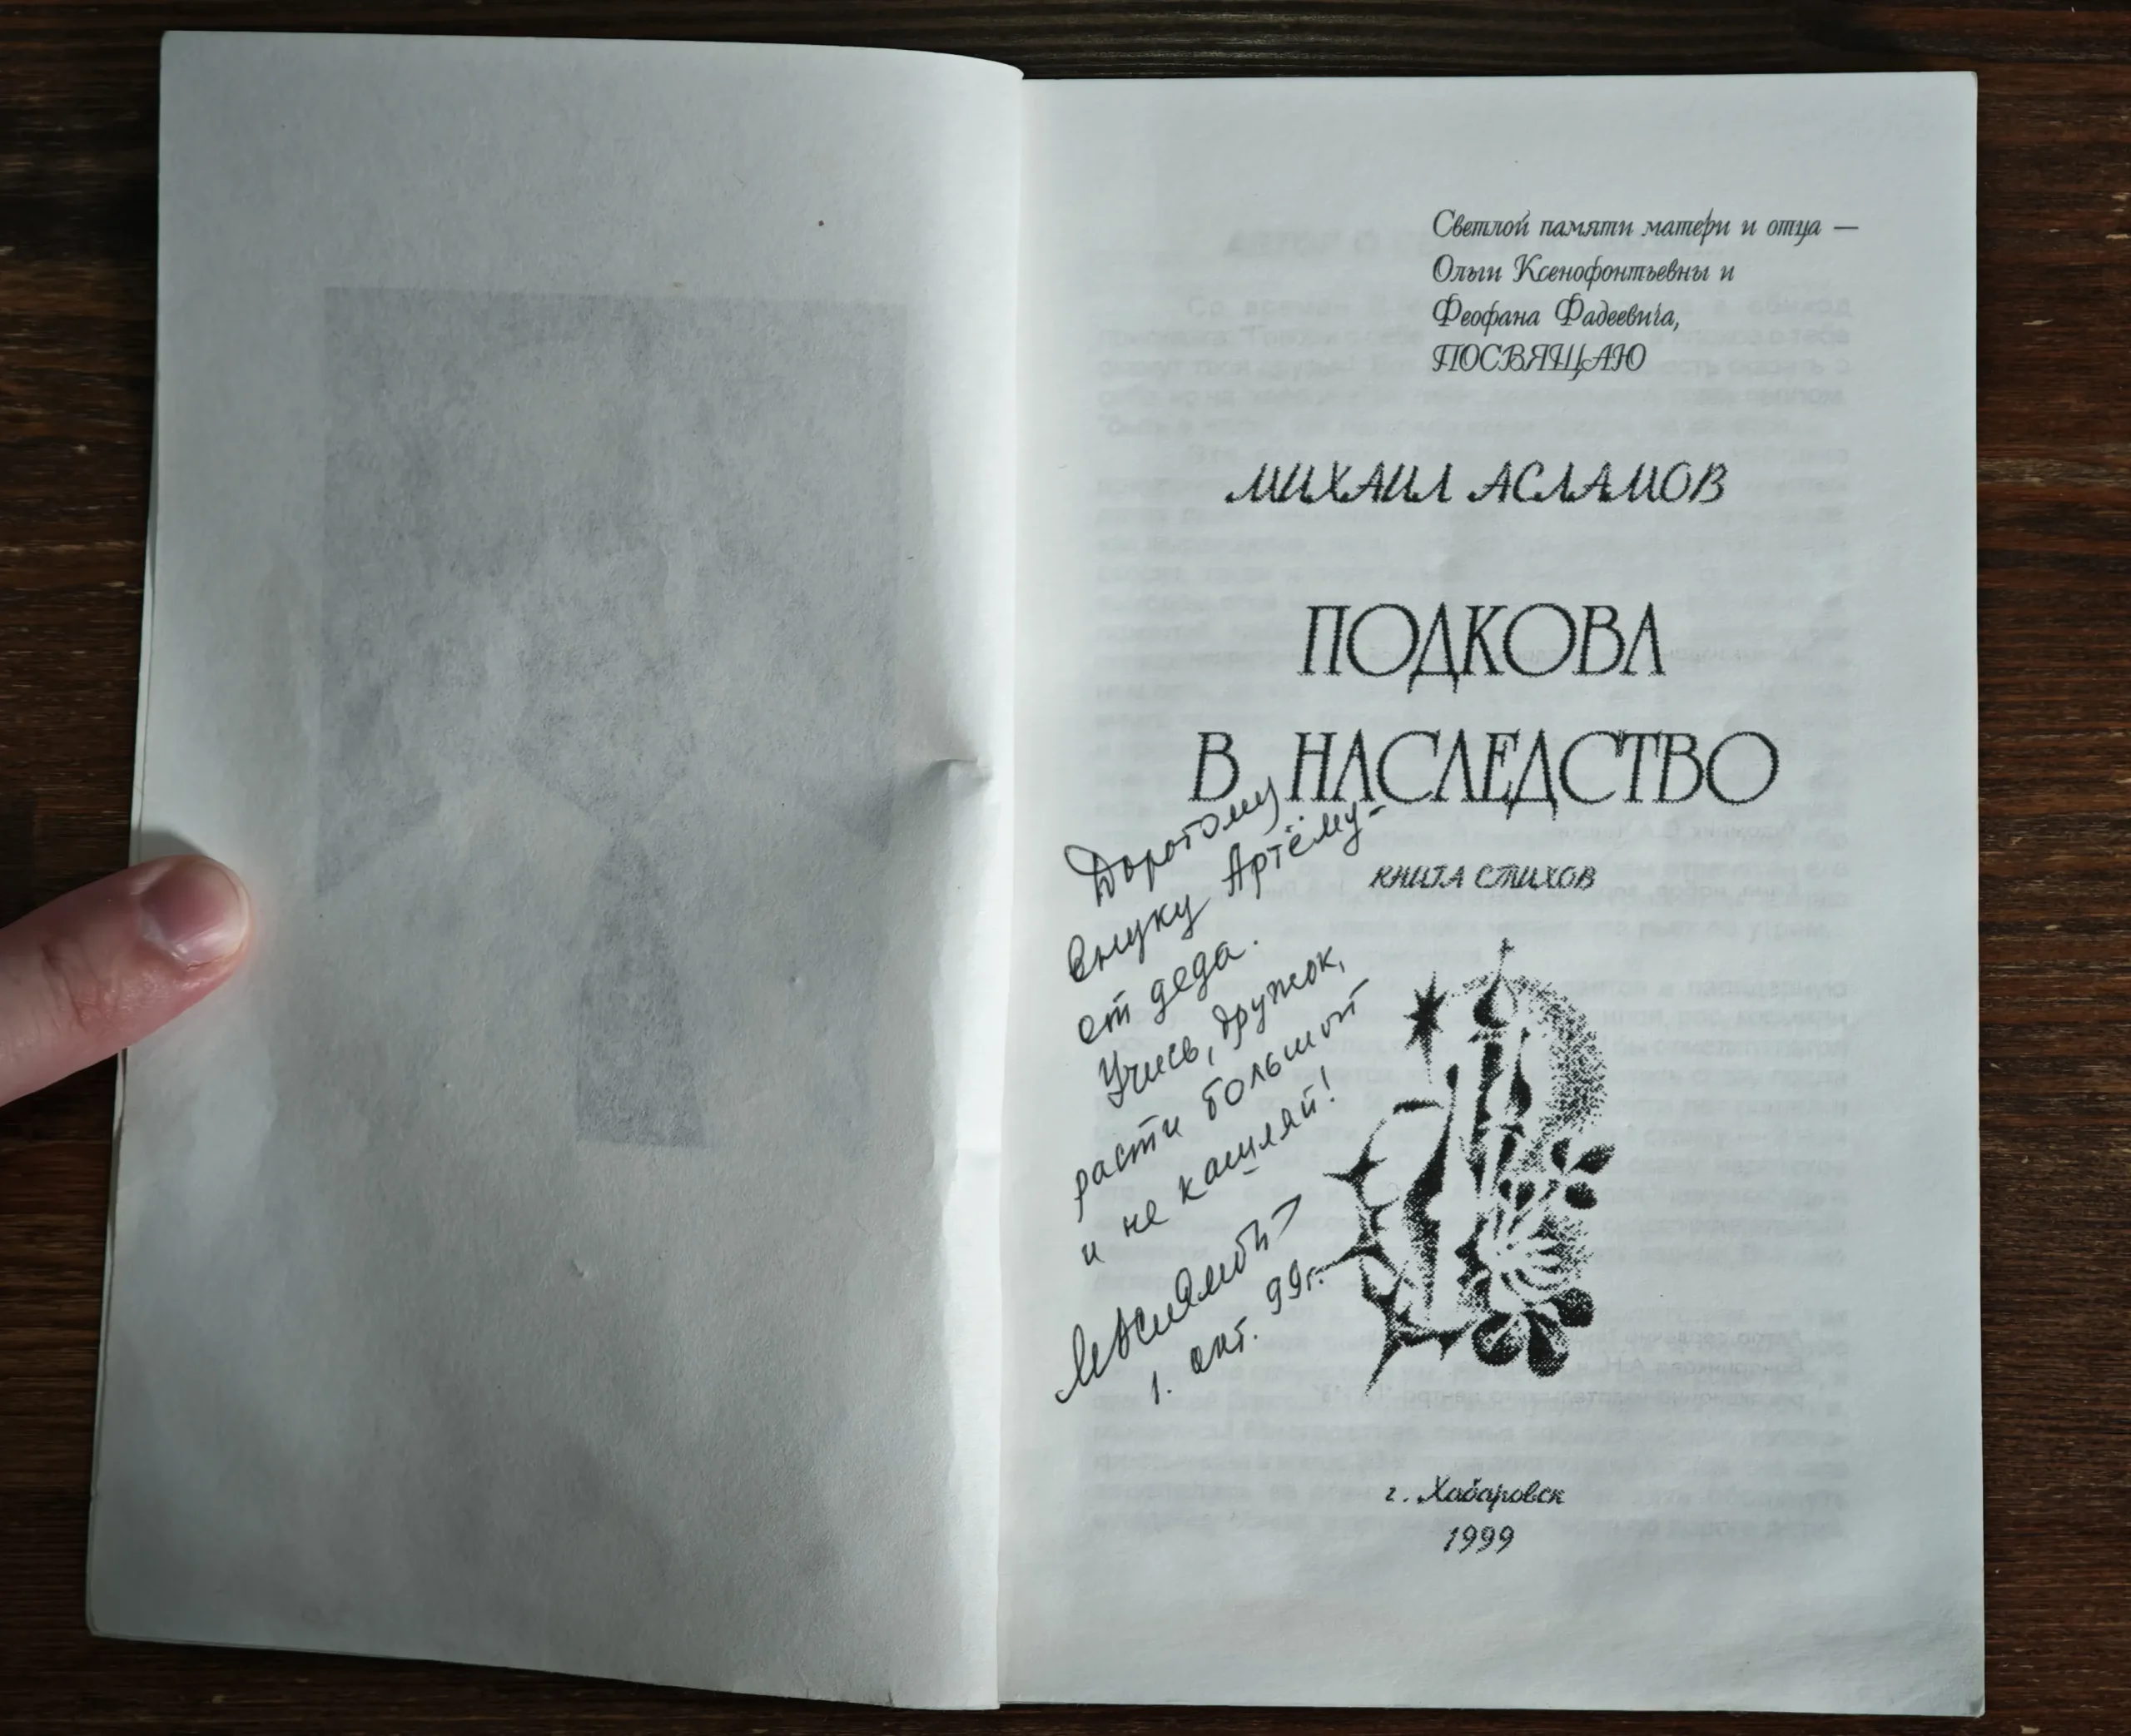 Светлой памяти матери и отца —
Ольги Ксенофонтьевны и
Феофана Фадеевича,
ПОСВЯЩАЮ
МИХАИЛ АСЛАМОВ
ПОДКОВА
В НАСЛЕДСТВО
КНИГА СТИХОВ
Дорогому
внуку Артёму-
от деда.
Учись, дружок,
расти большой
и не кашляй!
МАсламов
1. окт. 99г.
г. Хабаровск
1999